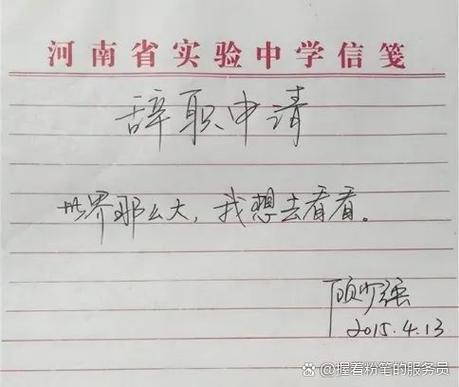 河南省实验中学信笺
辞职申请
世界那么大，我想去看看。
顾少强
2015.4.13
@握着粉笔的服务员